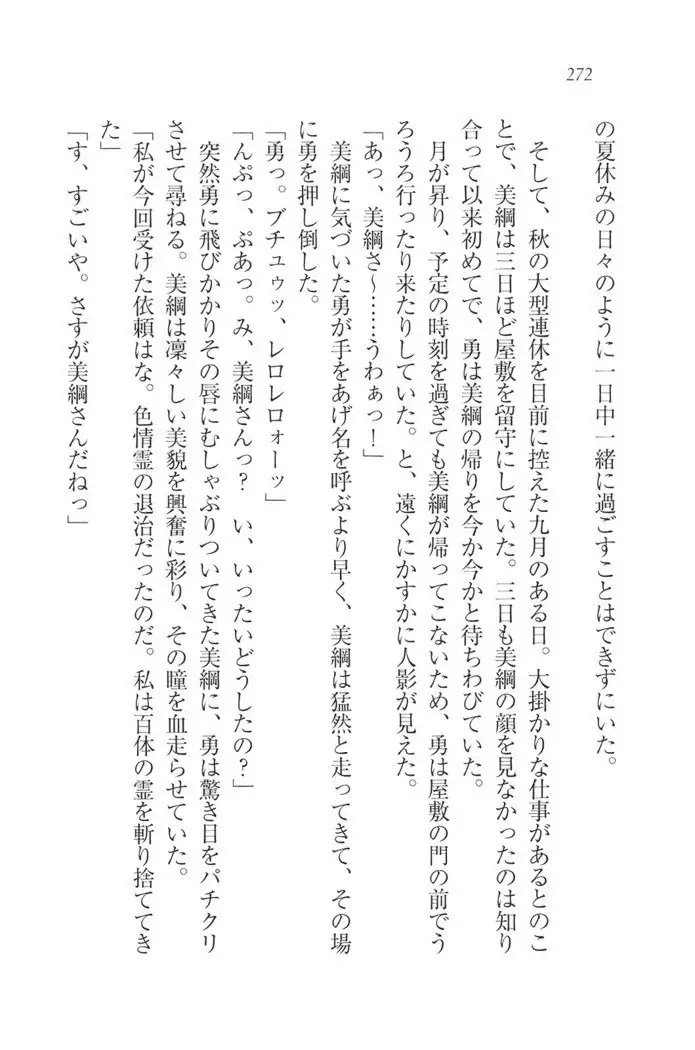 272
の夏休みの日々のように一日中一緒に過ごすことはできずにいた。
そして、秋の大型連休を目前に控えた九月のある日。大掛かりな仕事があるとのこ
とで、美綱は三日ほど屋敷を留守にしていた。三日も美綱の顔を見なかったのは知り
合って以来初めてで、勇は美綱の帰りを今か今かと待ちわびていた。
月が昇り、予定の時刻を過ぎても美綱が帰ってこないため、勇は屋敷の門の前でう
ろうろ行ったり来たりしていた。と、遠くにかすかに人影が見えた。
「あっ、美綱さ～……うわぁっ！」
美綱に気づいた勇が手をあげ名を呼ぶより早く、美綱は猛然と走ってきて、その場
に勇を押し倒した。
「勇っ。ブチュゥッ、レロレロォーッ」
「んぷっ、ぷあっ。み、美綱さんっ？　い、いったいどうしたの？」
突然勇に飛びかかりその唇にむしゃぶりついてきた美綱に、勇は驚き目をパチクリ
させて尋ねる。美綱は凜々しい美貌を興奮に彩り、その瞳を血走らせていた。
「私が今回受けた依頼はな。色情霊の退治だったのだ。私は百体の霊を斬り捨ててき
た」
「す、すごいや。さすが美綱さんだねっ」